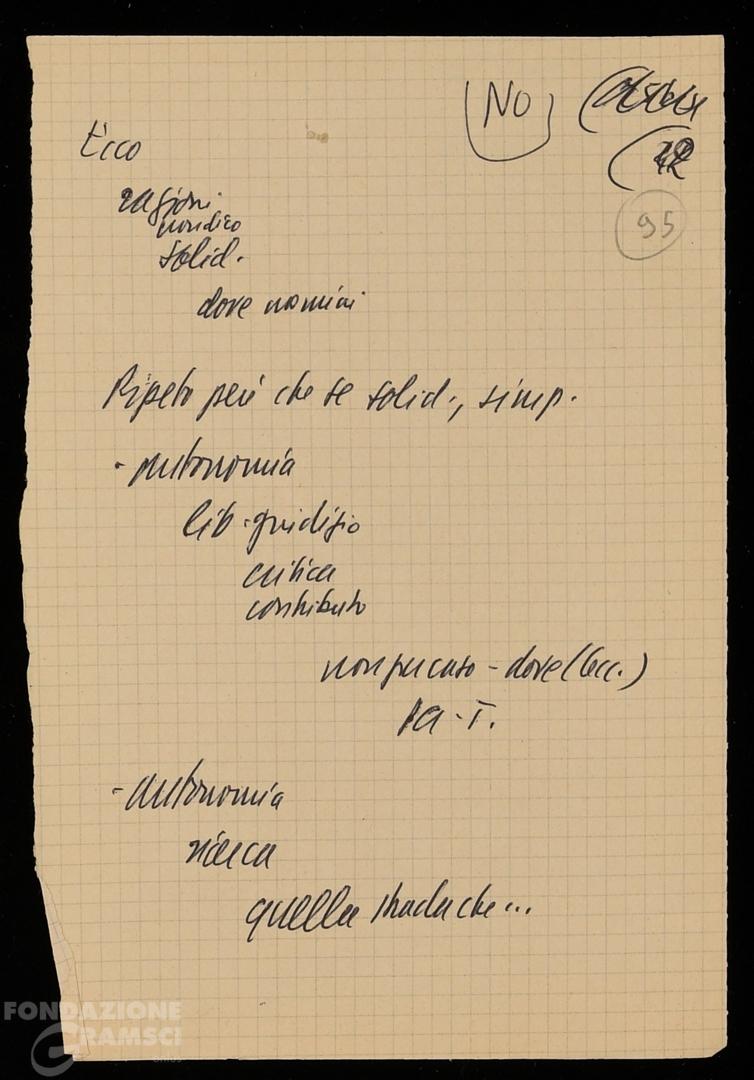 NO
95
Ecco
ragioni
non dico
solid.
dove nomini
Ripeto però che se solid., simp.
- autonomia
lib. giudizio
critica
contributo
non per caso - dove (Ecc.)
- autonomia
ricerca
quella strada che...
FONDAZIONE
GRAMSCI
onlus